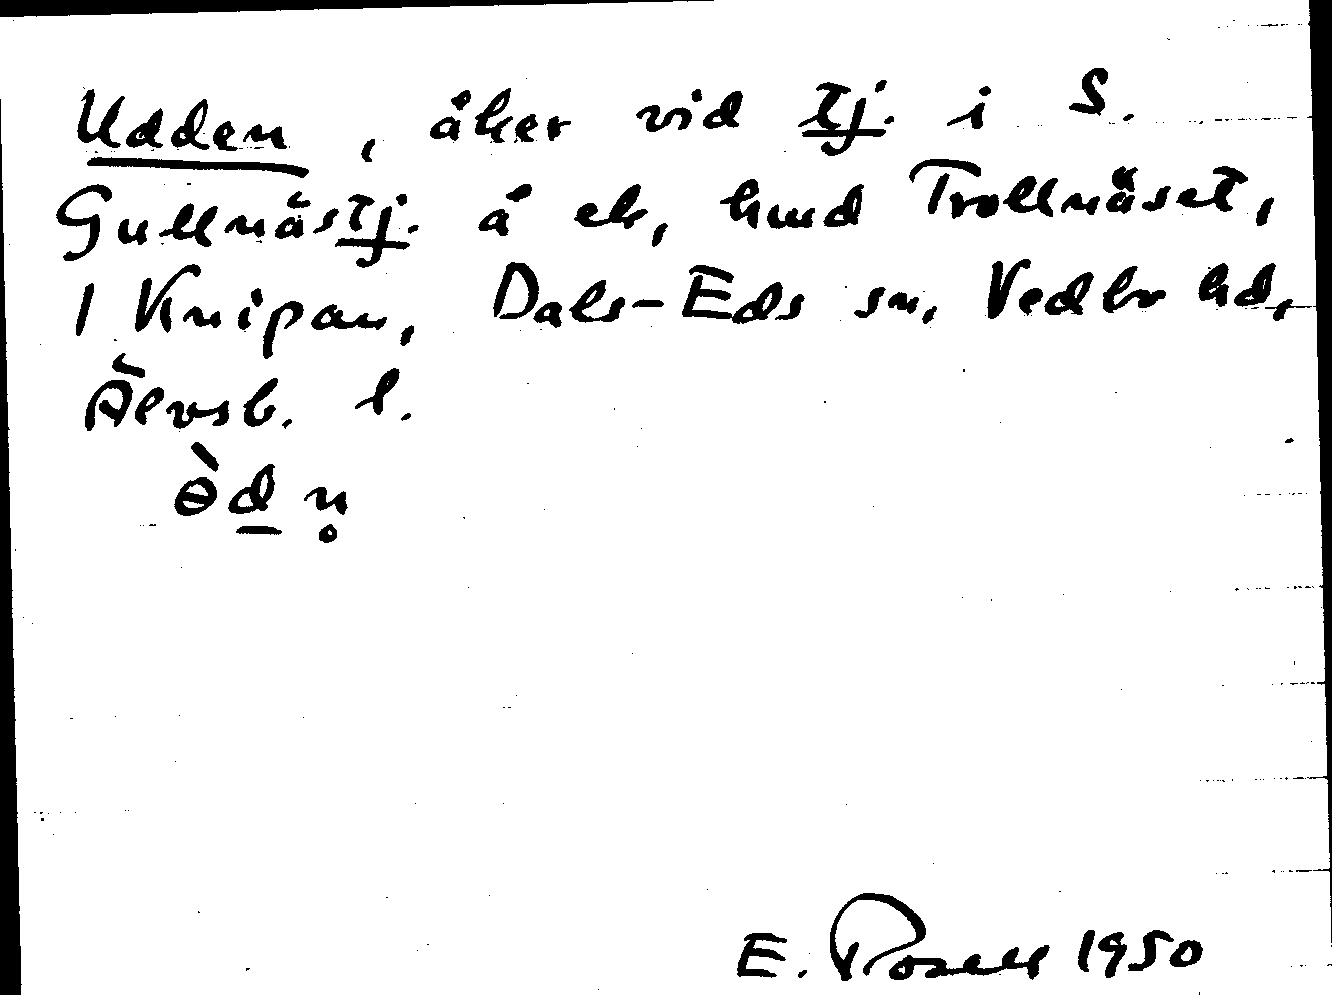 Udden, åker vid tj. i S.
Gullnästj. å ek, hmd Trollnäset,
1 Knipan, Dals-Eds sn, Vedbo hd,
Älvsb. l.
ɵ̀d n̥
E. Rosell 1950